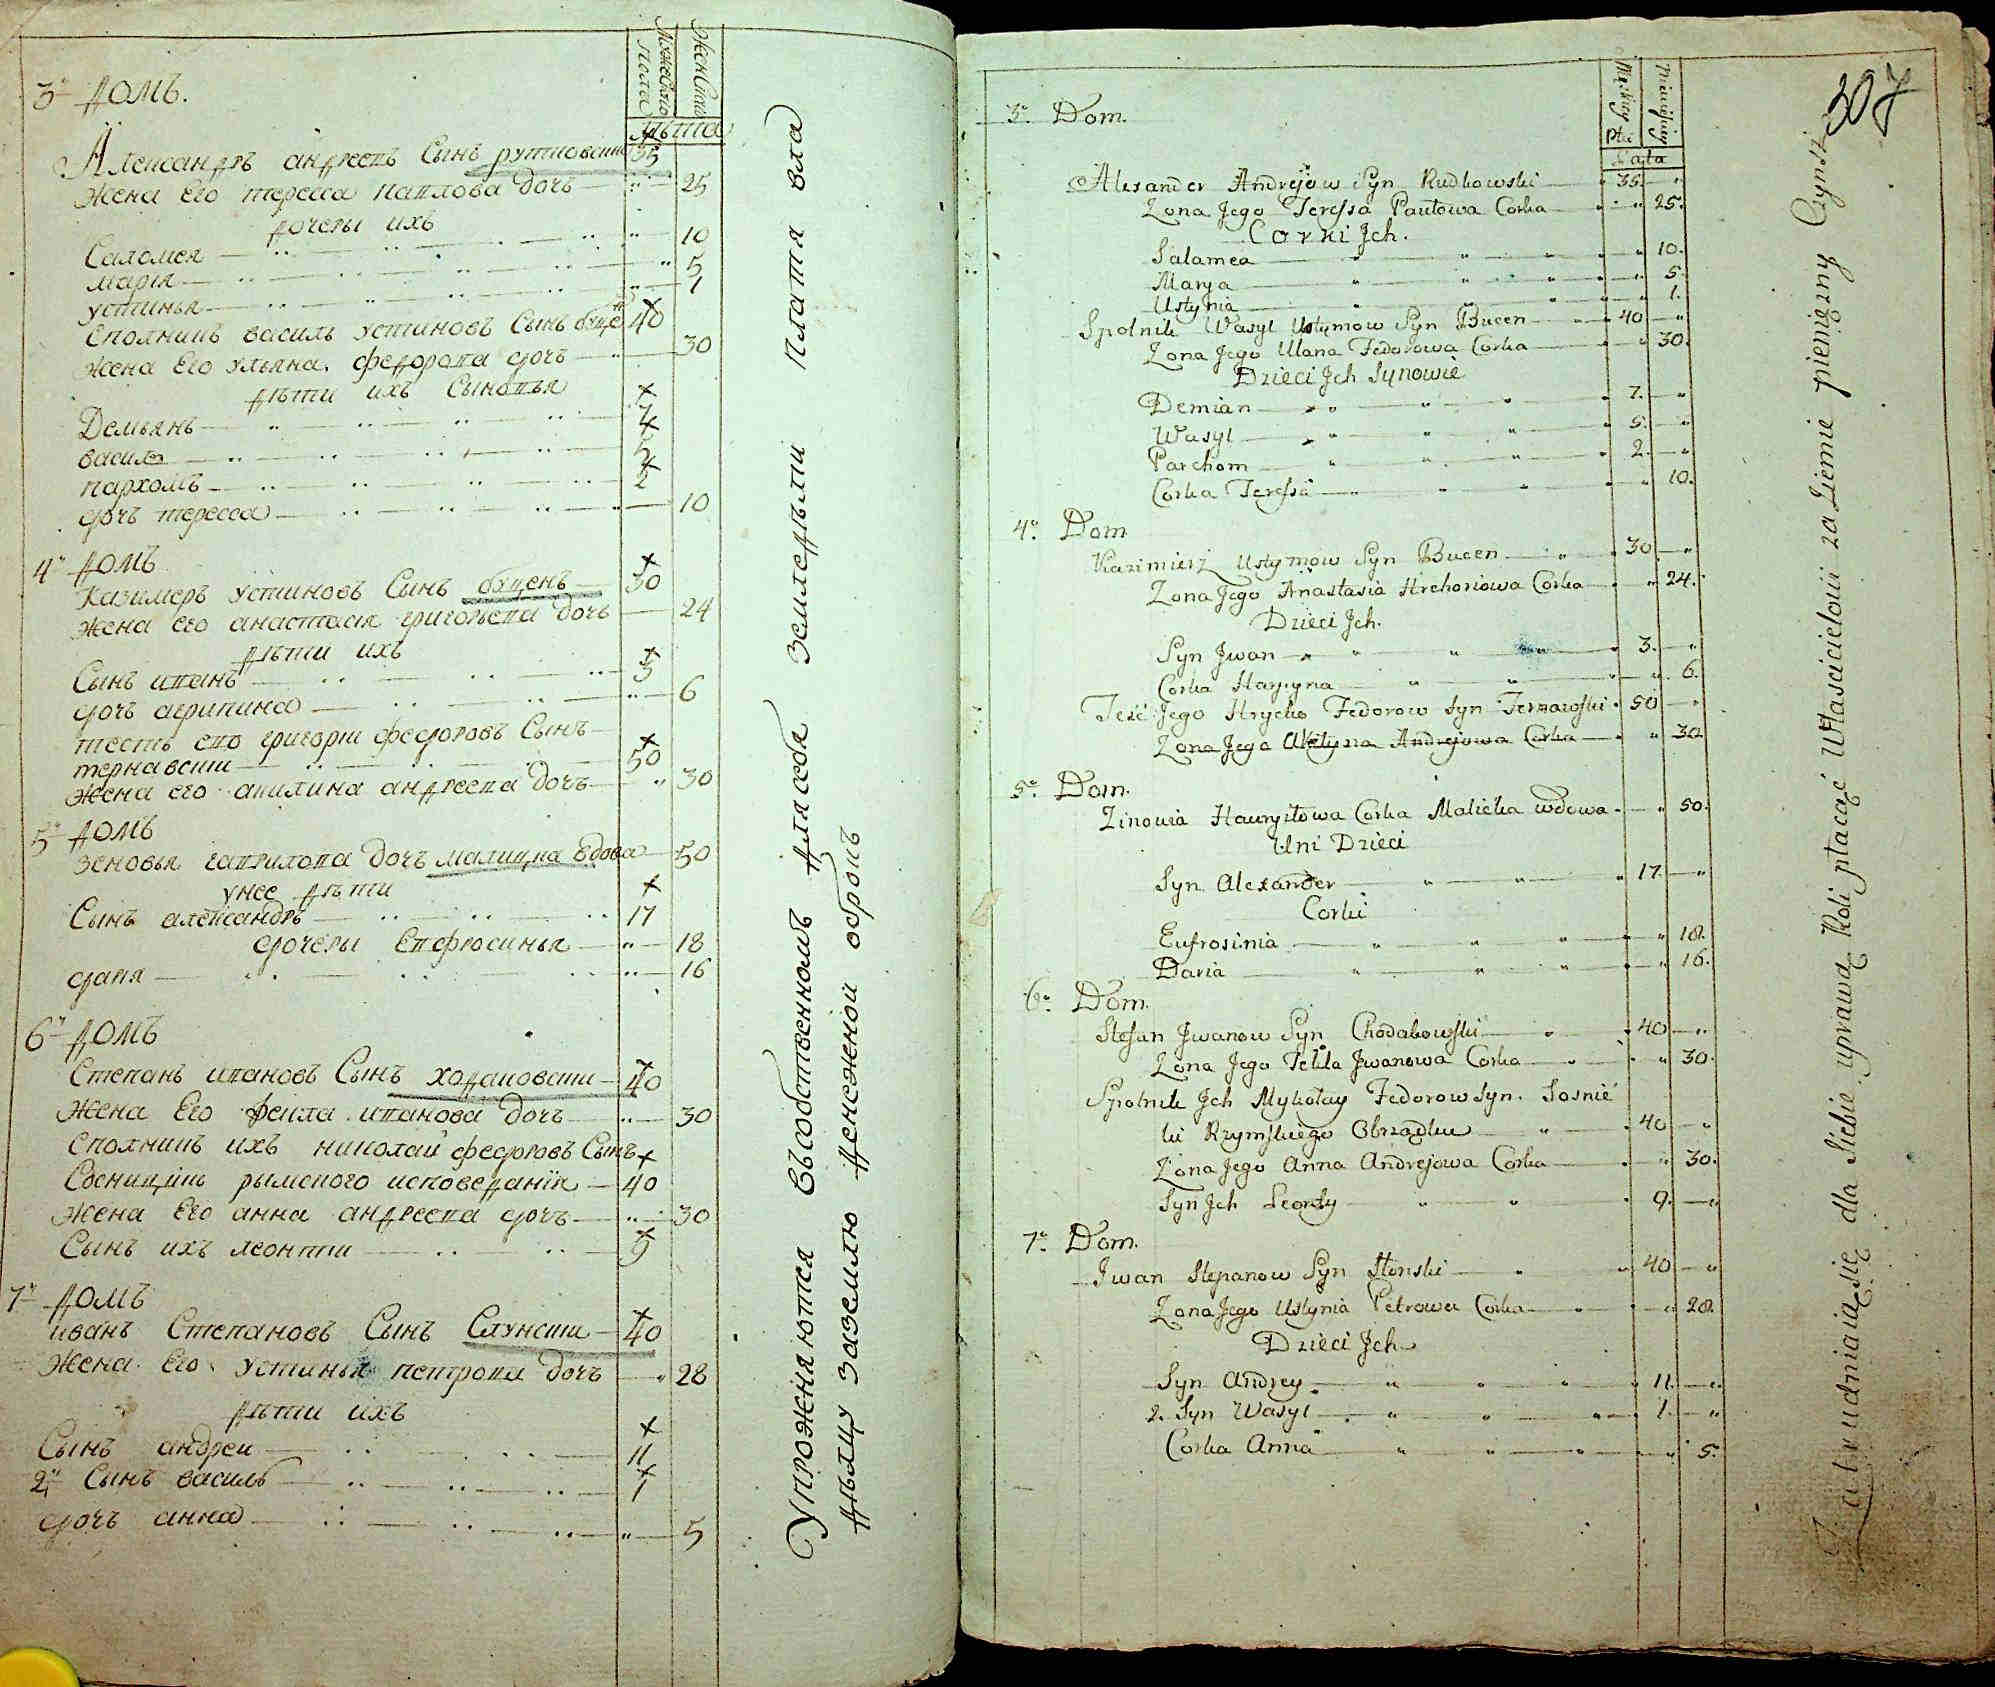 Мужеска пола
Женска
лѣта
3й домъ.
Александръ андреевъ Сынъ рутковски 35
жена Его тересса павлова дочь 25
дочеры ихъ
Саломея 10
мария 5
устинья 1
сполникъ василь устиновъ Сынъ буцен 40
жена Его ульяна федорова дочь 30
дѣти ихъ Сыновья
Демьянъ 7
василь 5
пархомъ 2
дочь тересса 10
4й домъ
Казимеръ устиновъ Сынъ буценъ 30
жена его анастасия григорьева дочь 24
дѣти ихъ
Сынъ иванъ 3
дочь агрипина 6
тесть его григори федоровъ Сынъ
тернавски 50
жена его акилина андреева дочь 30
5й домъ
зеновья гаврилова дочь малицка вдова 50
унее дѣти
Сынъ александръ 17
дочеры Евфросинья 18
даря 16
6й домъ
Степанъ ивановъ Сынъ ходаковски 40
жена Его фекла иванова дочь 30
сполникъ ихъ николай федоровъ Сынъ
Сосницкий рымского исповедания 40
жена Его анна андреева дочь 30
Сынъ ихъ леонтии 9
7й домъ
иванъ Степановъ Сынъ Слунски 40
жена Его устинья петрова дочь 28
дѣти ихъ
Сынъ андреи 11
2й Сынъ василь 1
дочь анна 5
Упрожняются Въсобственномъ для себя земледѣлии плата вла
дѣлцу заземлю денежной оброкъ
307
Męzkiey Płci
Zienskiey
Lata
3o. Dom.
Alexander Andrejow Syn Rudkowski 35.
Zona Jego Teressa Pawłowa Corka 25.
Corki Jch.
Salamea 10.
Marya 5.
Ustynia 1.
Spolnik Wasyl Ustymow Syn Bucen 40
Zona Jego Ulana Fedorowa Corka 30.
Dzieci Jch Synowie
Demian 7.
Wasyl 5.
Parchom 2.
Corka Teressa 10.
4o. Dom
Kazimierz Ustymow Syn Bucen 30
Zona Jego Anastasia Hrehoriowa Corka 24.
Dzieci Jch.
Syn Jwan 3.
Corka Harpyna 6.
Teść Jego Hrycko Fedorow Syn Ternawski 50
Zona Jego Akelyna Andrejowa Corka 30
5o. Dom.
Zinowia Hawryłowa Corka Malicka wdowa 50.
U ni Dzieci
Syn Alexander 17.
Corki
Eufrosinia 18.
Daria 16.
6o. Dom.
Stefan Jwanow Syn Chodakowski 40
Zona Jego Tekla Jwanowa Corka 30.
Spolnik Jch Mykołay Fedorow Syn. Sosnic
ki Rzymskiego Obrządku 40
Zona Jego Anna Andrejowa Corka 30.
Syn Jch Leonty 9.
7o. Dom.
Jwan Stepanow Syn Słonski 40
Zona Jego Ustynia Petrowa Corka 28.
Dzieci Jch
Syn Andrey 11.
2. Syn Wasyl 1.
Corka Anna 5.
Zatrudniaią się dla Siebie uprawą Roli płacąć Właścicielowi za Ziemie pienięzny Czynsz